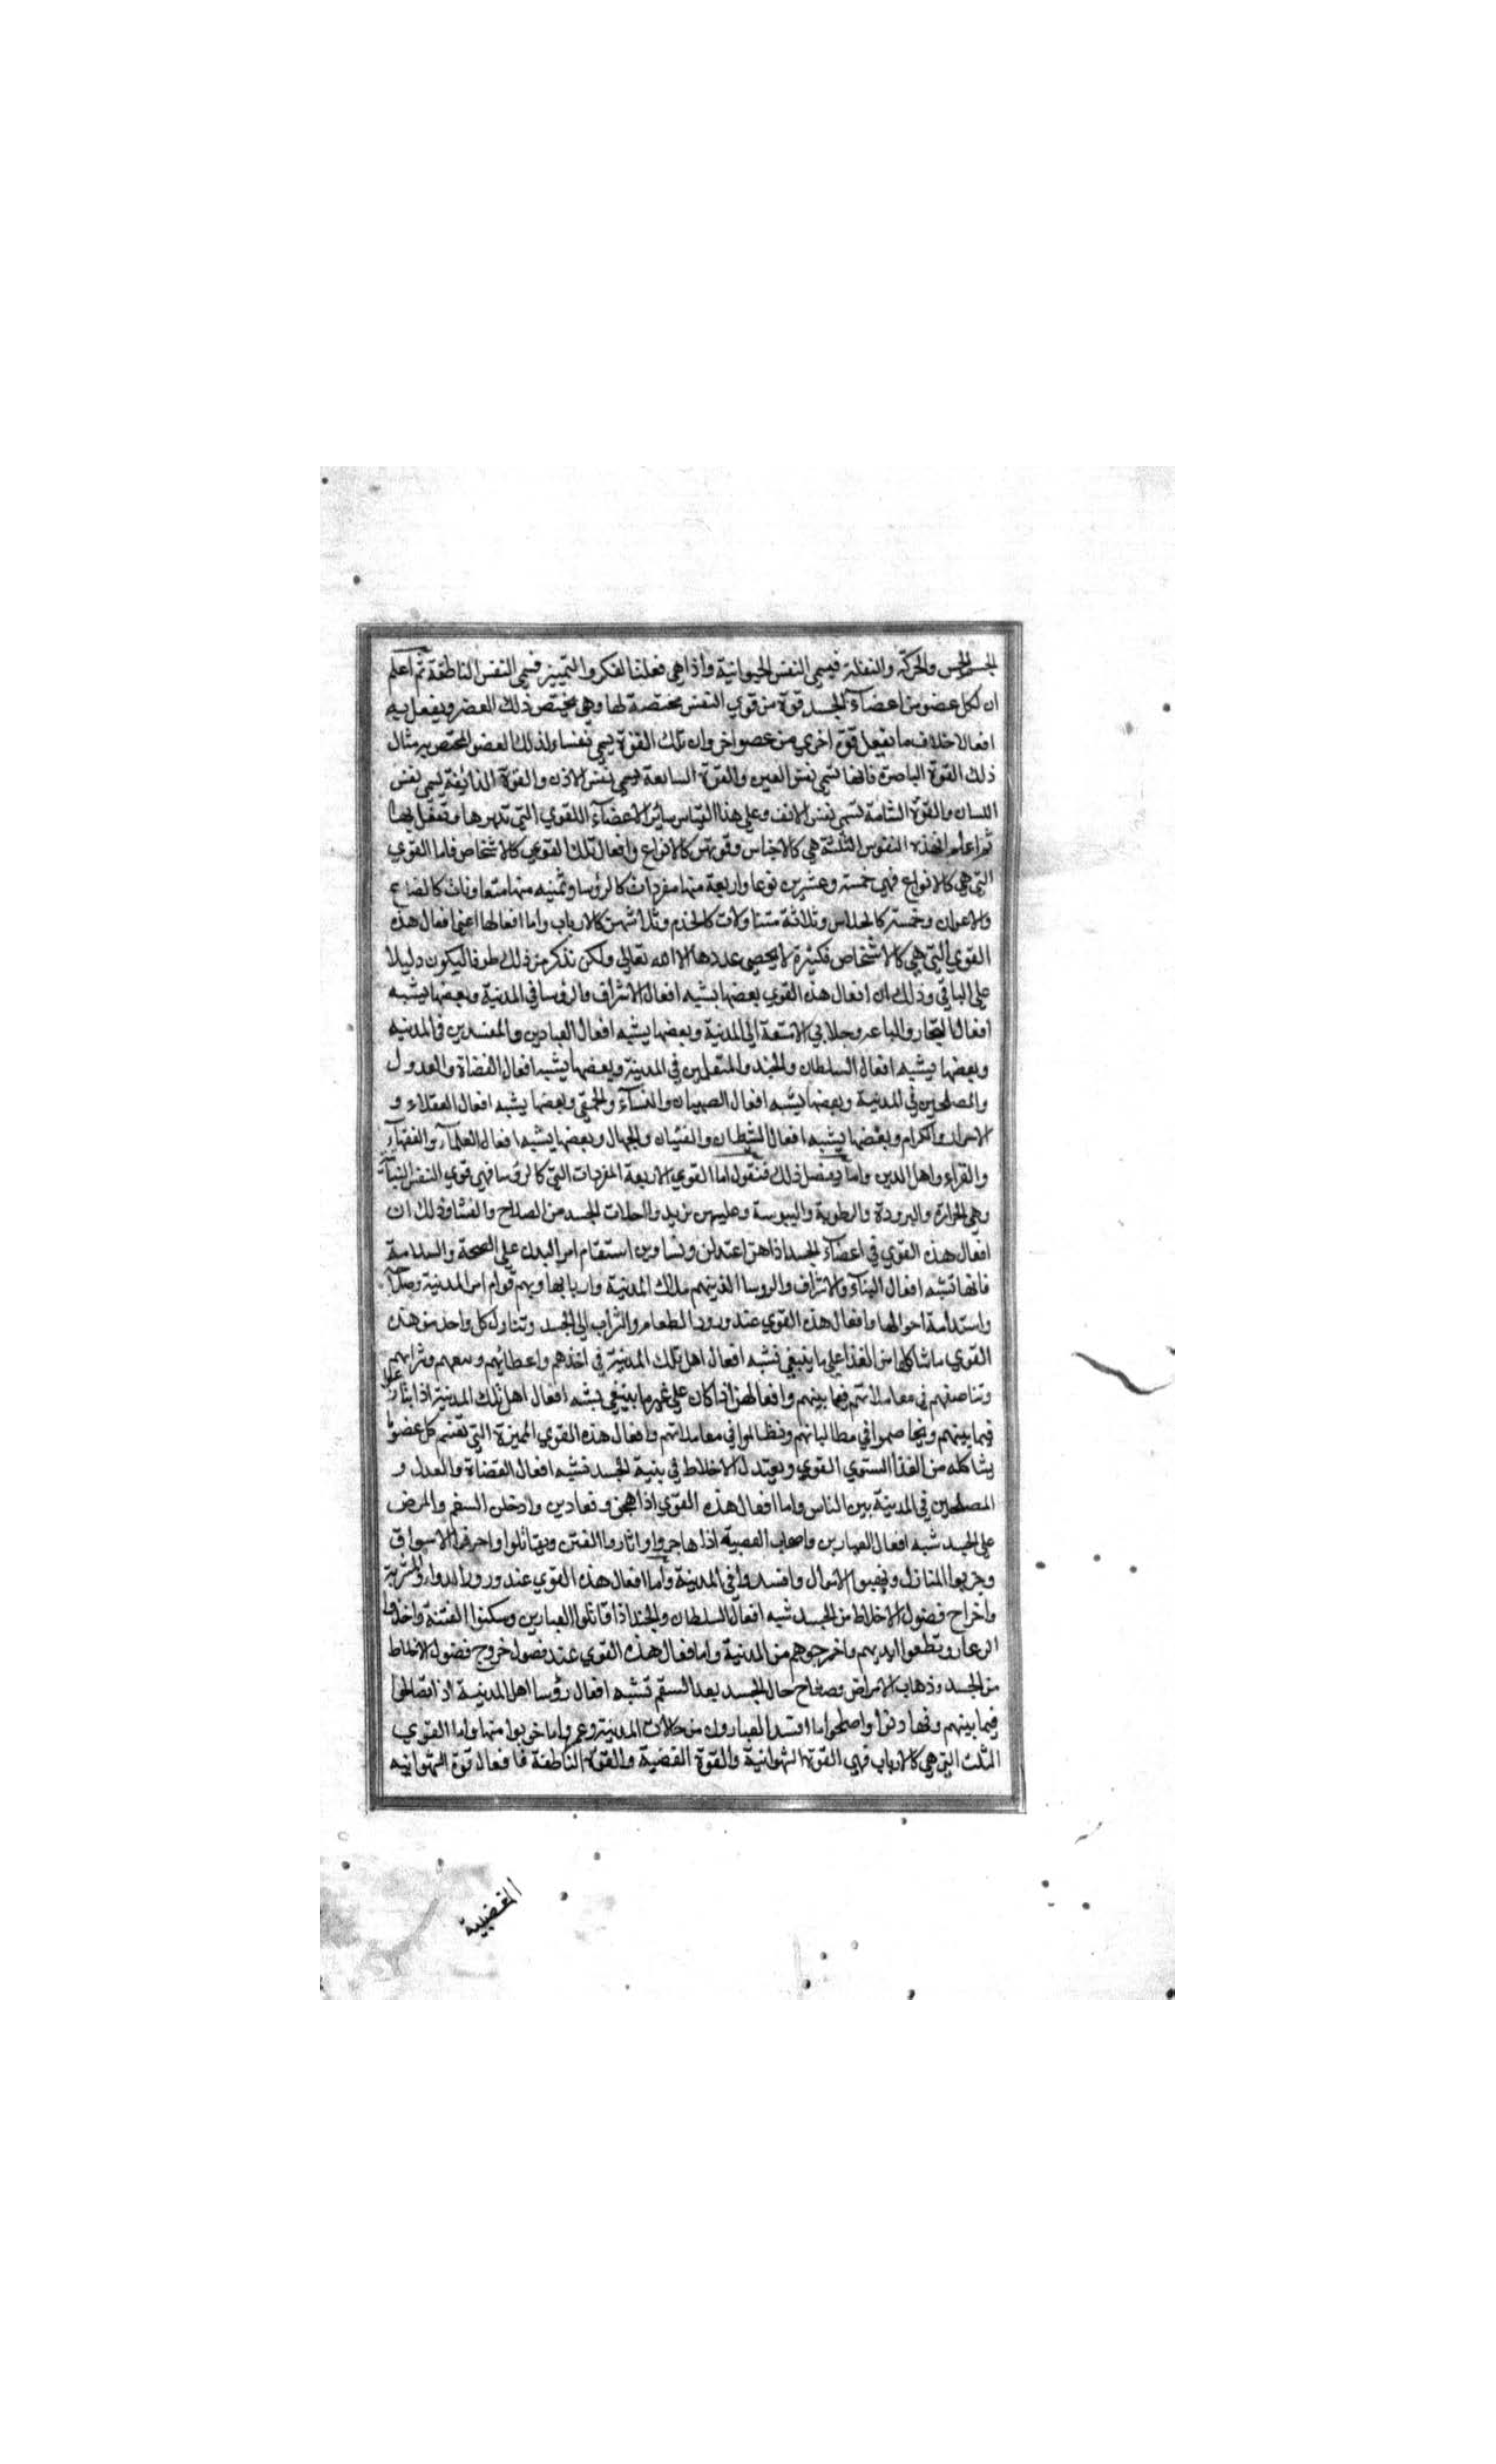 الجسم الحس والحركة والنقلة فيسمى النفس الحيوانية واذا هي فعلنا الفكر والتمييز فيسمى النفس الناطقة ثم اعلم
ان لكل عضو من اعضآء الجسد قوة من قوي النفس مختصة لها وهي يختص ذلك العضو ويفعل به
افعالا خلاف ما يفعل قوة اخري من عضو اخر وان تلك القوة يسمي نفسا لذلك العضو المختص به مثال
ذلك القوة الباصرة فانها تسمي نفس العين والقوة السامعة يسمي نفس الاذن والقوة الذائقة يسمي نفس
اللسان والقوة الشامة تسمي نفس الانف وعلي هذا القياس سائر الاعضآء اللقوي التي تدبرها وتفعل بها
ثم اعلم ان هذه النفوس الثلثة هي كالاجناس وقوتهن كالانواع وافعال تلك القوي كالاشخاص فاما القوي
التي هي كالانواع فهي خمسة وعشرين نوعا واربعة منها مفردات كالرؤسا وثمنيه منها متعاونات كالصناع
والاعوان وخمسة كالجلاس وثلاثة متناولات كالخدم وثلاثهن كالارباب واما افعالها اعني افعال هذه
القوي التي هي كالاشخاص فكثيرة لا يحصي عددها الا الله تعالي ولكن نذكر من ذلك طرفا ليكون دليلا
علي الباقي وذلك ان افعال هذه القوي بعضها يشبه افعال الاشراف والرؤسا في المدينة وبعضها يشبه
افعال التجار والباعه وجلابي الامتعة الي المدنية وبعضها يشبه افعال العيارين والمفسدين في المدنيه
وبعضها يشبه افعال السلطان والجند والمتغلبين في المدينة وبعضها يشبه افعال القضاة والعدول
والمصلحين في المدنية وبعضها يشبه افعال الصبيان والنسآء والحمقي وبعضها يشبه افعال العقلاء و
الابرار والكرام وبعضها يشبه افعال الشيطان والفتيان والجهال وبعضها يشبه افعال العلمآء والفقهآء
والقراء واهل الدين واما تفصل ذلك فنقول اما القوي الاربعة المفردات التي كالرؤسا فهي قوي النفس النباتية
وهي الحرارة والبرودة والرطوبة واليبوسة وعليهن تزيد والحلات الجسد من الصلاح والفساد وذلك ان
افعال هذه القوي في اعضآء الجسد اذا هن اعتدلن وتساوين استقام امر البدن علي الصحة والسلامة
فانها تشبه افعال البنآء والاشراف والروسا الذين هم ملاك المدنية واربابها وبهم قوام امر المدنية وصلاح
واستدامة احوالها وافعال هذه القوي عند ورود الطعام والشراب الي الجسد وتناول كل واحد من هذه
القوي ما شاكلها من الغذا علي ما ينبغي تشبه افعال اهل تلك المدنية في اخذهم واعطائهم وبيعهم وشرائهم
وتناصفهم في معاملاتهم فيما بينهم وافعالهن اذا كان علي غير ما ينبغي يشبه افعال اهل تلك المدنية اذا
فيما بينهم ويخاصموا في مطالباتهم وتظالموا في معاملاتهم وافعال هذه القوي المميزة التي تقسم كل عضو ما
يشاكله من الغذا المستوي القوي ويعتدل الاخلاط في بنية الجسد فتشبه افعال القضاة والعدل و
المصلحين في المدنية بين الناس واما افعال هذه القوي اذا هجن وتعادين وادخلن السقم والمرض
علي الجسد شبه افعال العيارين واصحاب العصبية اذا هاجروا واثاروا الفتن ويقاتلوا واحرقوا الاسواق
وخربوا المنازل ونهبوا الاموال وافسدوا في المدنية واما افعال هذه القوي عند ورود الدواء والشربة
واخراج فضول الاخلاط من الجسد شبه افعال السلطان والجند اذا قاتلوا العيارين وسكنوا الفتنة واخذوا
الزعار وقطعوا ايديهم واخرجوهم من المدنية واما افعال هذه القوي عند فصول خروج فضول الاخلاط
من الجسد وذهاب الامراض وصلاح حال الجسد بعد السقم تشبه افعال رؤسا اهل المدنية اذا تصالحوا
فيما بينهم وتهادنوا واصلحوا ما افسد العيارون من حالات المدنية وعمروا ما خربوا منها واما القوي
الثلث التي هي كالارباب فهي القوة الشهوانية والقوة الغضبية والقوة الناطقة فافعال قوة الشهوانيه
الغضبية